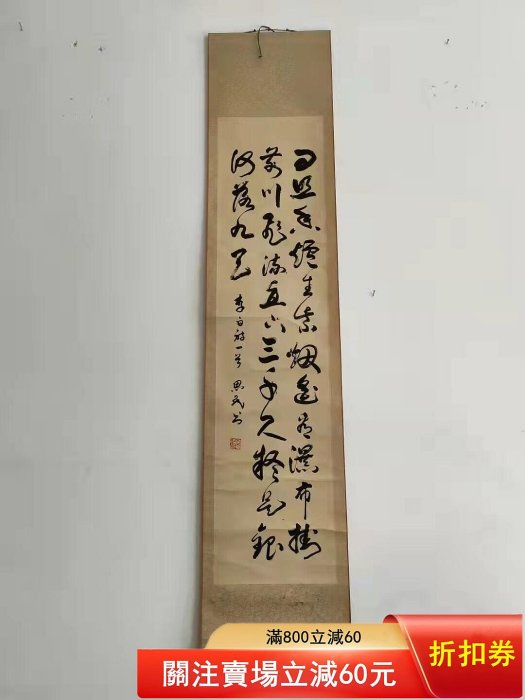 日照香爐生紫煙遙看瀑布掛
前川飛流直下三千尺疑是銀
河落九天
李白詩一首 思民書
滿800立減60
關注賣場立減60元
折扣券